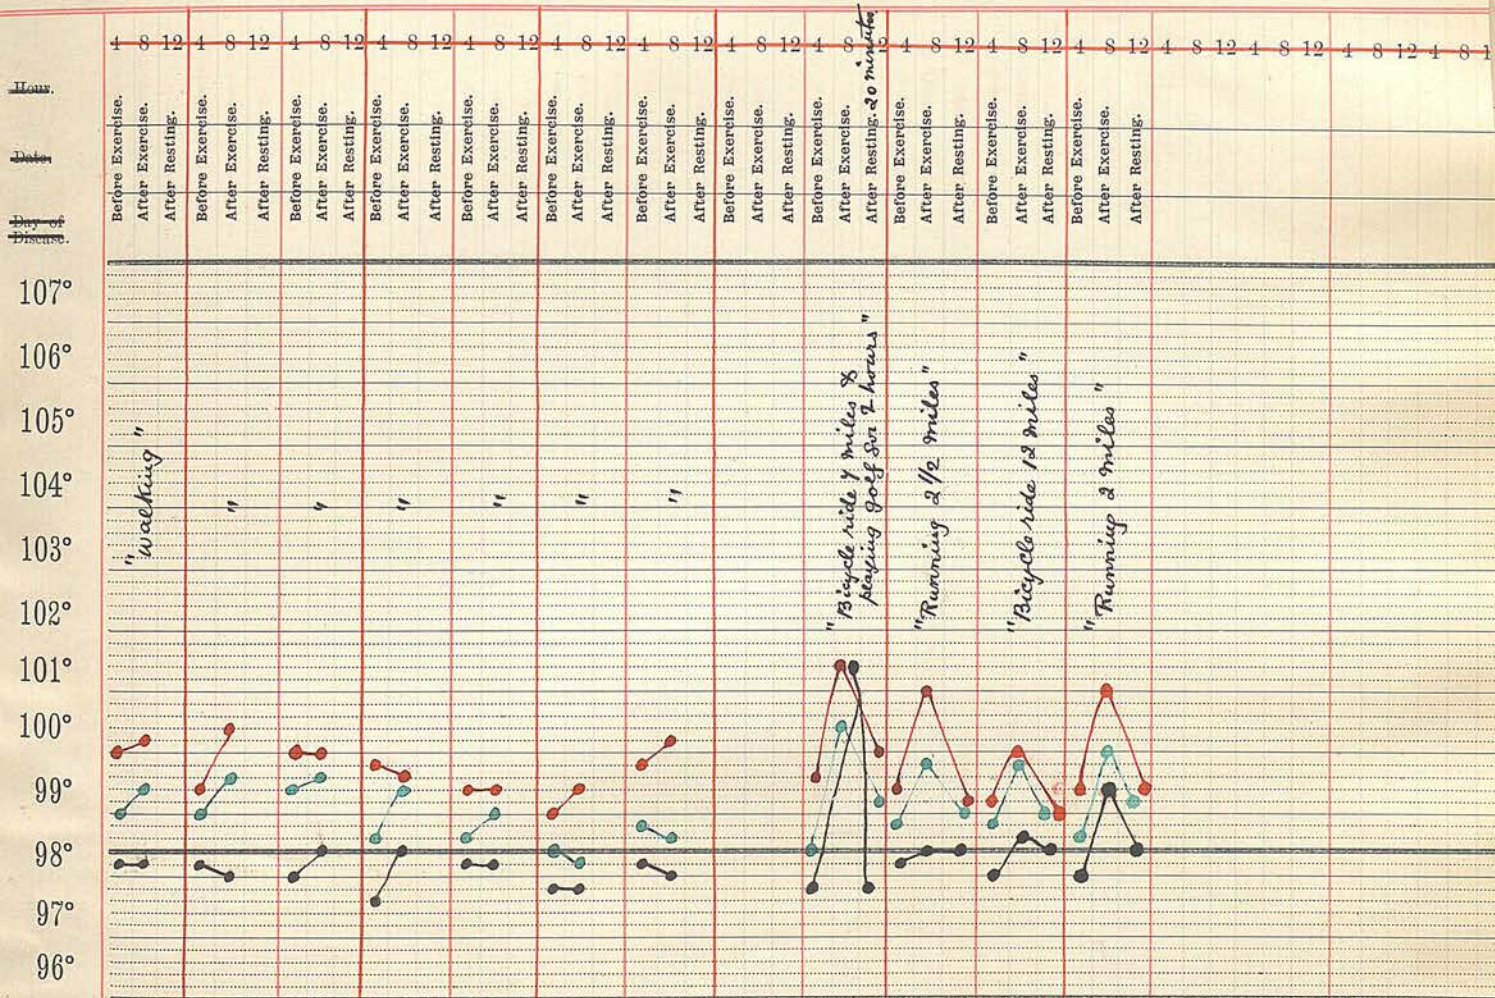 4 8 12 4 8 12 4 8 12 4 8 12 4 8 12 4 8 12 4 8 12 4 8 12 4 8 12 4 8 12 4 8 12 4 8 12 4 8 12 4 8 12 4 8 12 4 8 1
Hour.
Date.
Day of
Disease.
Before Exercise.
After Exercise.
After Resting.
Before Exercise.
After Exercise.
After Resting.
Before Exercise.
After Exercise.
After Resting.
Before Exercise.
After Exercise.
After Resting.
Before Exercise.
After Exercise.
After Resting.
Before Exercise.
After Exercise.
After Resting.
Before Exercise.
After Exercise.
After Resting.
Before Exercise.
After Exercise.
After Resting.
Before Exercise.
After Exercise.
After Resting. 20 minutes
Before Exercise.
After Exercise.
After Resting.
Before Exercise.
After Exercise.
After Resting.
Before Exercise.
After Exercise.
After Resting.
107°
106°
105°
104°
103°
102°
101°
100°
99°
98°
97°
96°
"Walking"
"
"
"
"
"
"
"Bicycle ride 7 miles &
playing golf for 2 hours"
"Running 2 1/2 miles"
"Bicycle ride 12 miles"
"Running 2 miles"